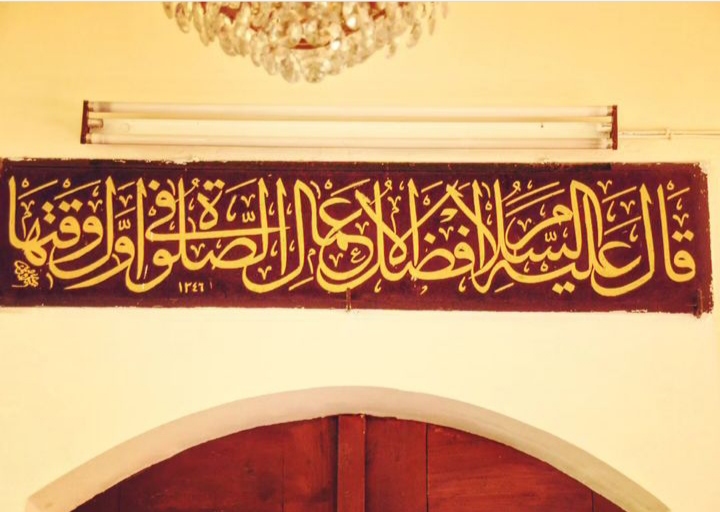 قال عليه السلام افضل الاعمال الصلوة فى اول وقتها
١٣٤٦